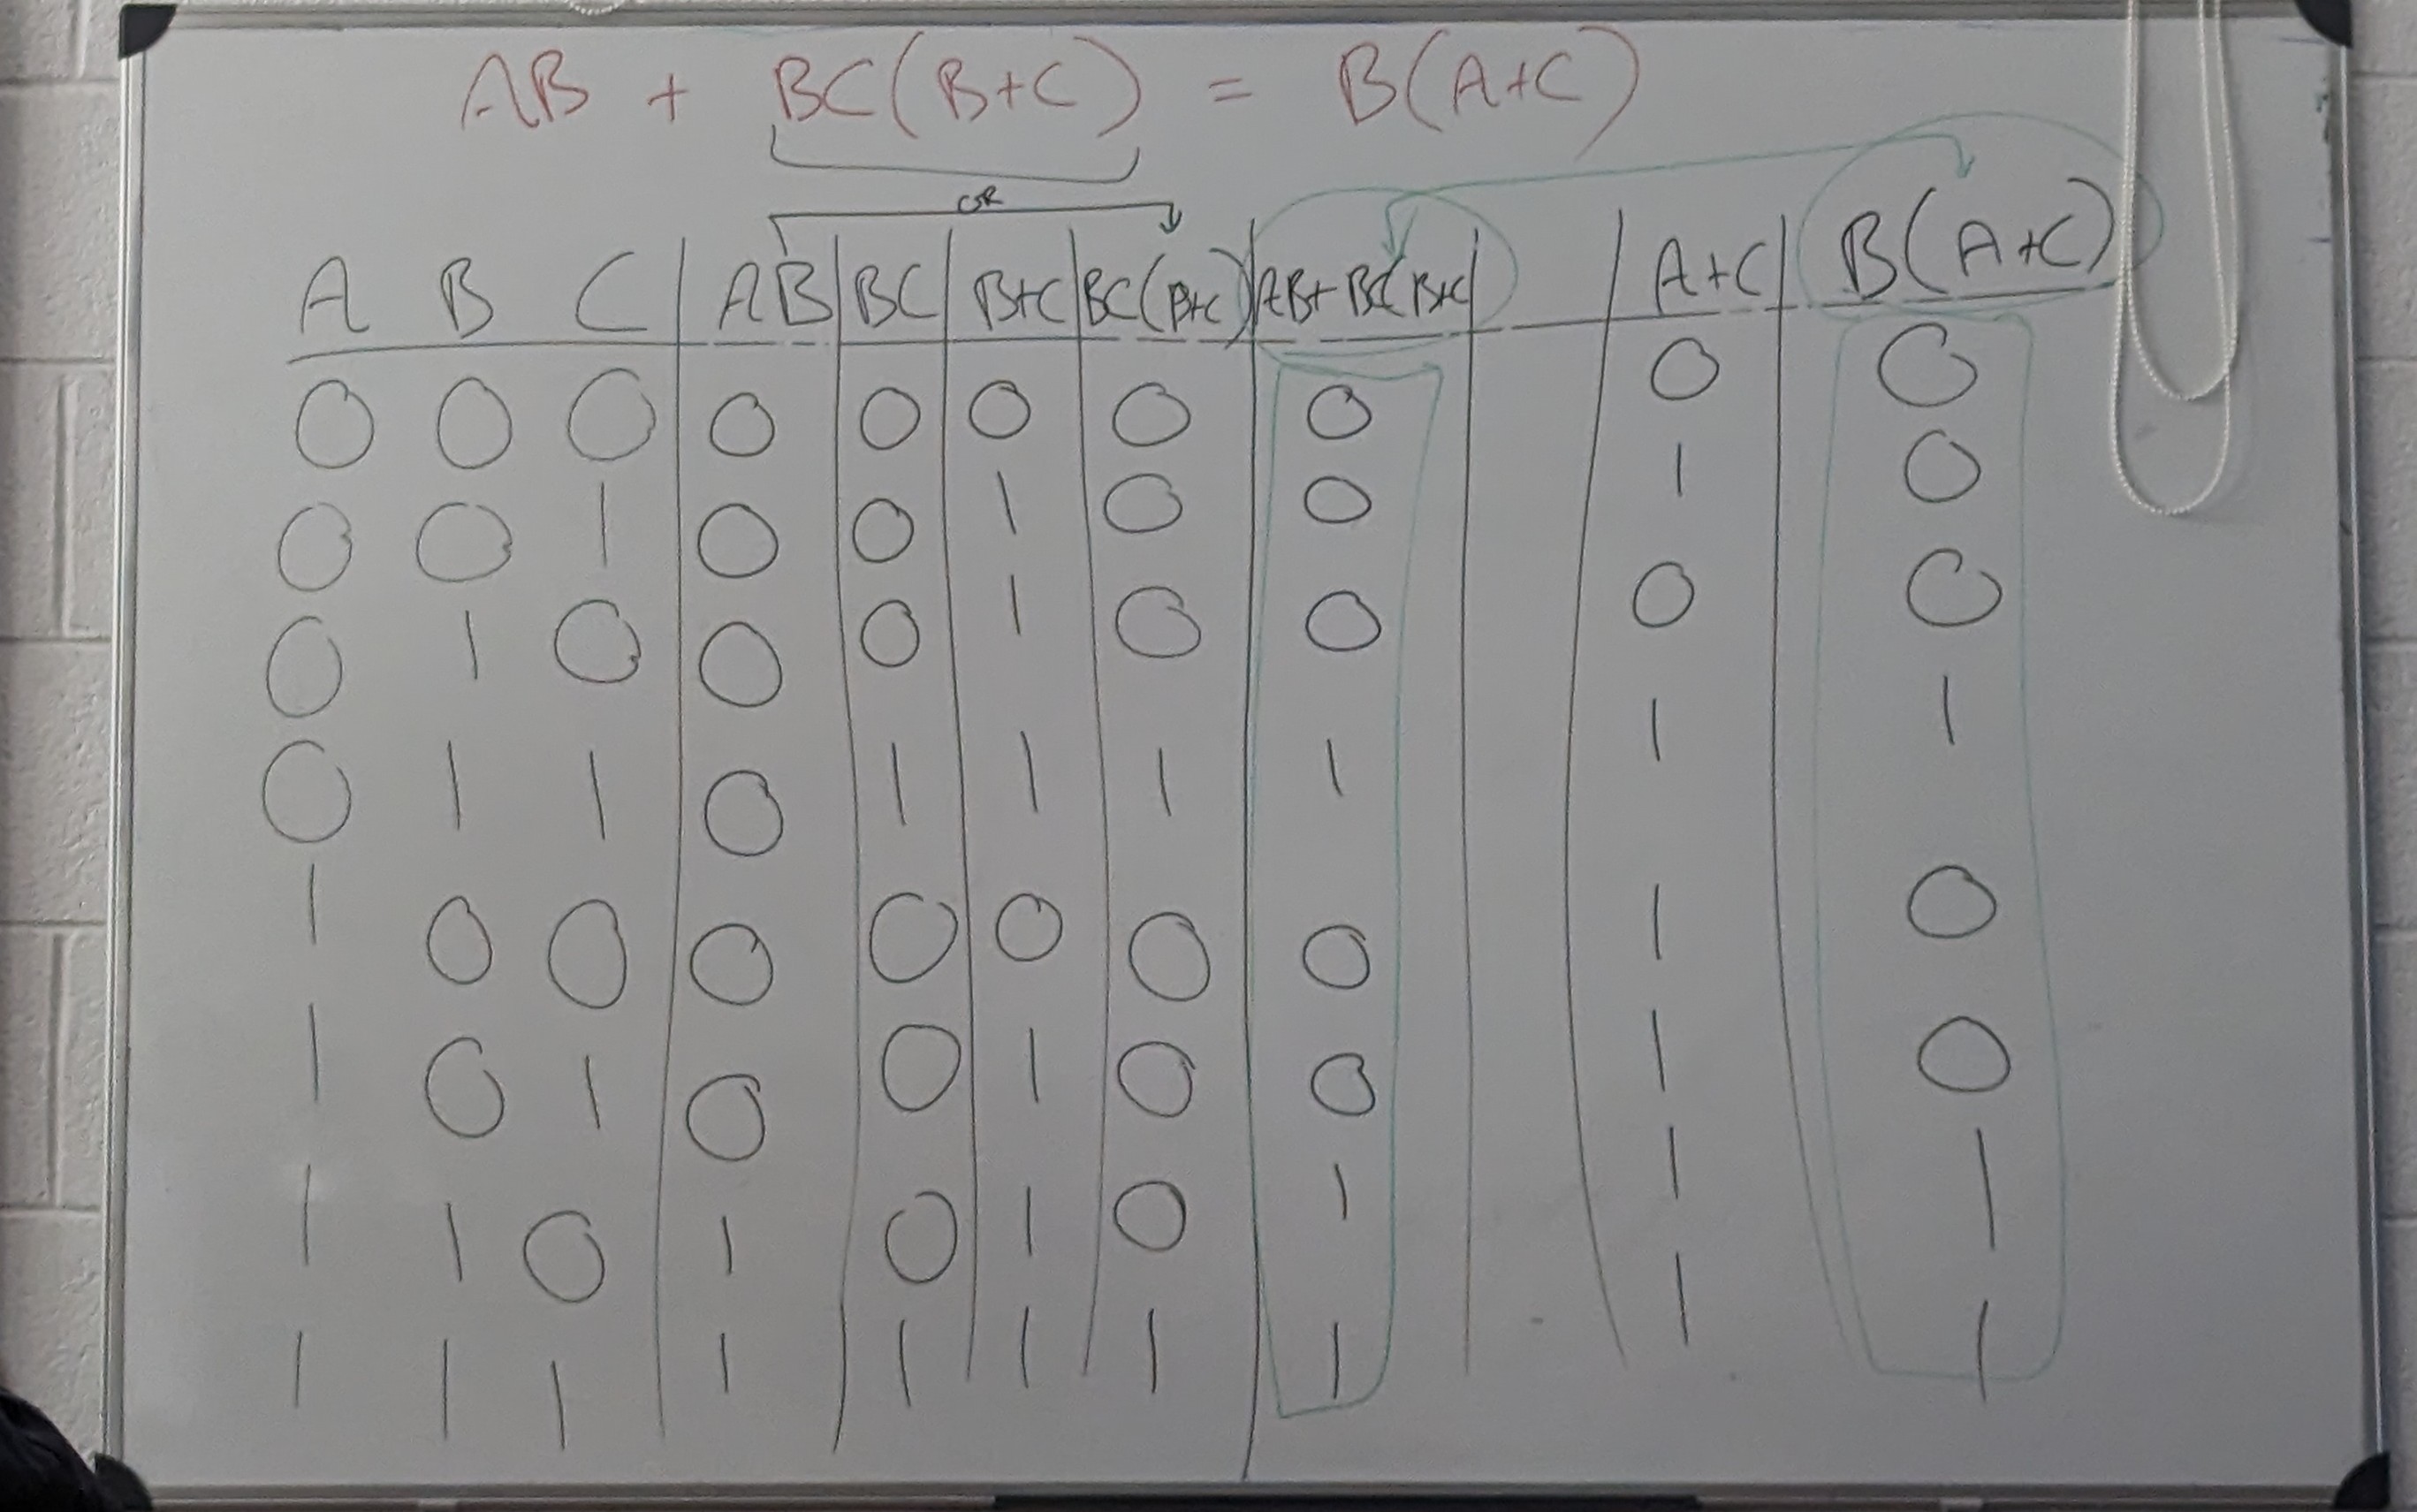 AB + BC(B+C) = B(A+C)
OR
A B C AB BC B+C BC(B+C) AB+BC(B+C) A+C B(A+C)
0 0 0 0 0 0 0 0 0 0
0 0 1 0 0 1 0 0 1 0
0 1 0 0 0 1 0 0 0 0
0 1 1 0 1 1 1 1 1 1
1 0 0 0 0 0 0 0 1 0
1 0 1 0 0 1 0 0 1 0
1 1 0 1 0 1 0 1 1 1
1 1 1 1 1 1 1 1 1 1